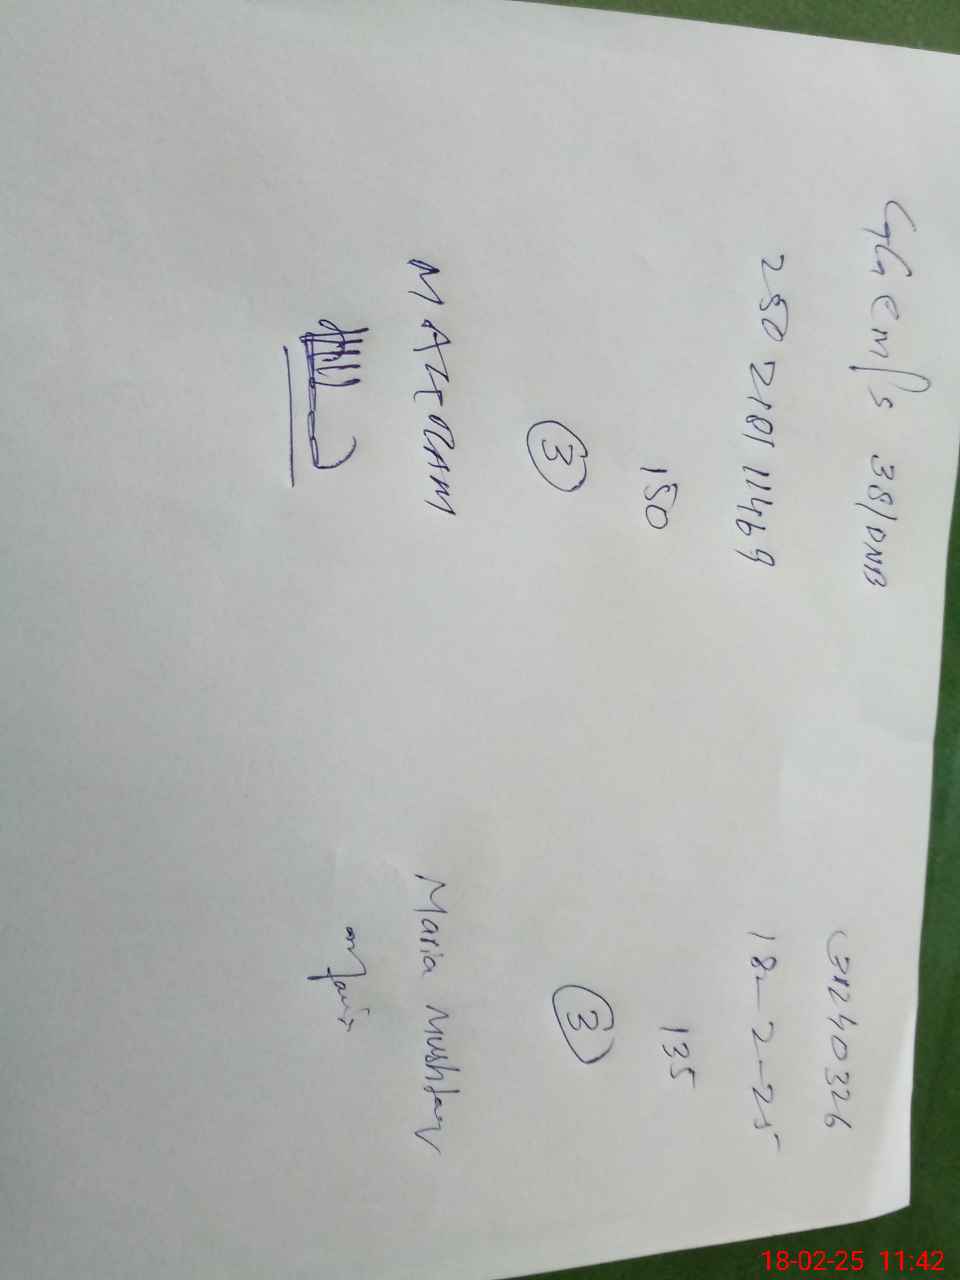 GGemps 38/DNB
250218111469
150
3
M AKRAM
240326
18-2-25
135
3
Maria Mushtaq
Maria
18-02-25 11:42